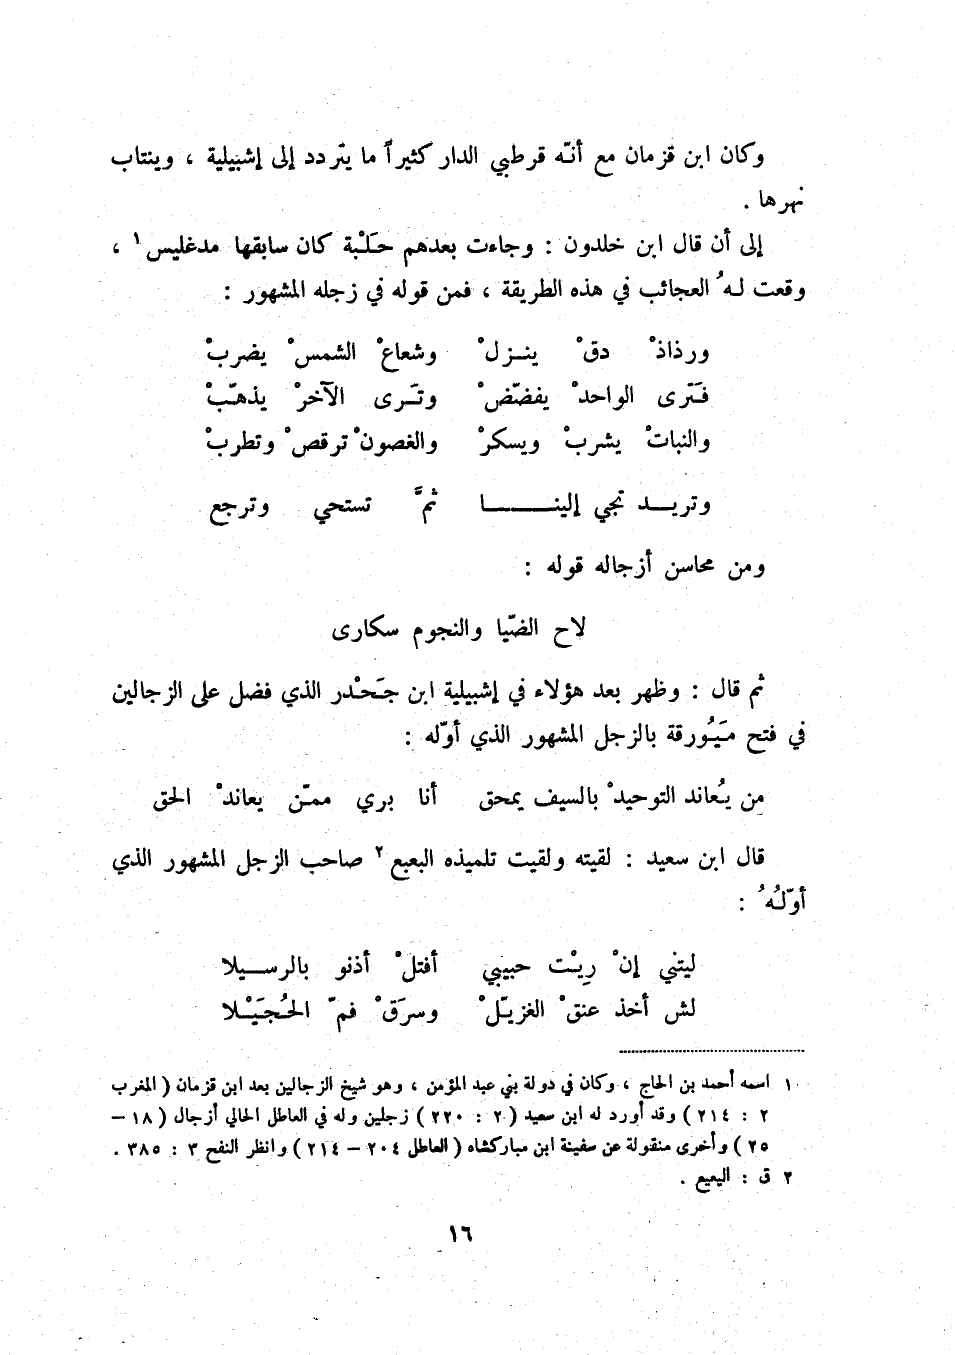 وكان ابن قزمان مع أنّه قرطبي الدار كثيراً ما يتردد إلى إشبيلية ، وينتاب
نهرها .
إلى أن قال ابن خلدون : وجاءت بعدهم حَلْبة كان سابقها مدغليس ١ ،
وقعت لـهُ العجائب في هذه الطريقة ، فمن قوله في زجله المشهور :
ورذاذْ دقْ ينـزلْ وشعاعْ الشمسْ يضربْ
فَتَرى الواحدْ يفضّضْ وتَـرى الآخرْ يذهّبْ
والنباتْ يشربْ ويسكرْ والغصونْ ترقصْ وتطربْ
وتريـــد تجي إلينــــــــا ثمَّ تستحي وترجع
ومن محاسن أزجاله قوله :
لاح الضّيا والنجوم سكارى
ثم قال : وظهر بعد هؤلاء في إشبيلية ابن جَحْدر الذي فضل على الزجالين
في فتح مَيُورقة بالزجل المشهور الذي أوّله :
من يُعاند التوحيدْ بالسيف يمحق أنا بري ممّن يعاندْ الحق
قال ابن سعيد : لقيته ولقيت تلميذه البعبع ٢ صاحب الزجل المشهور الذي
أوّلُهُ :
ليتني إنْ رِيْت حبيبي أفتلْ أذنو بالرسـيلا
لش أخذ عنقْ الغزيّلْ وسرَقْ فمّ الحُجَيْلا
١ اسمه أحمد بن الحاج ، وكان في دولة بني عبد المؤمن ، وهو شيخ الزجالين بعد ابن قزمان ( المغرب
٢ : ٢١٤ ) وقد أورد له ابن سعيد ( ٢ : ٢٢٠ ) زجلين وله في العاطل الحالي أزجال ( ١٨ –
٢٥ ) وأخرى منقولة عن سفينة ابن مباركشاه ( العاطل ٢٠٤ – ٢١٤ ) وانظر النفح ٣ : ٣٨٥ .
٢ ق : اليعيع .
١٦